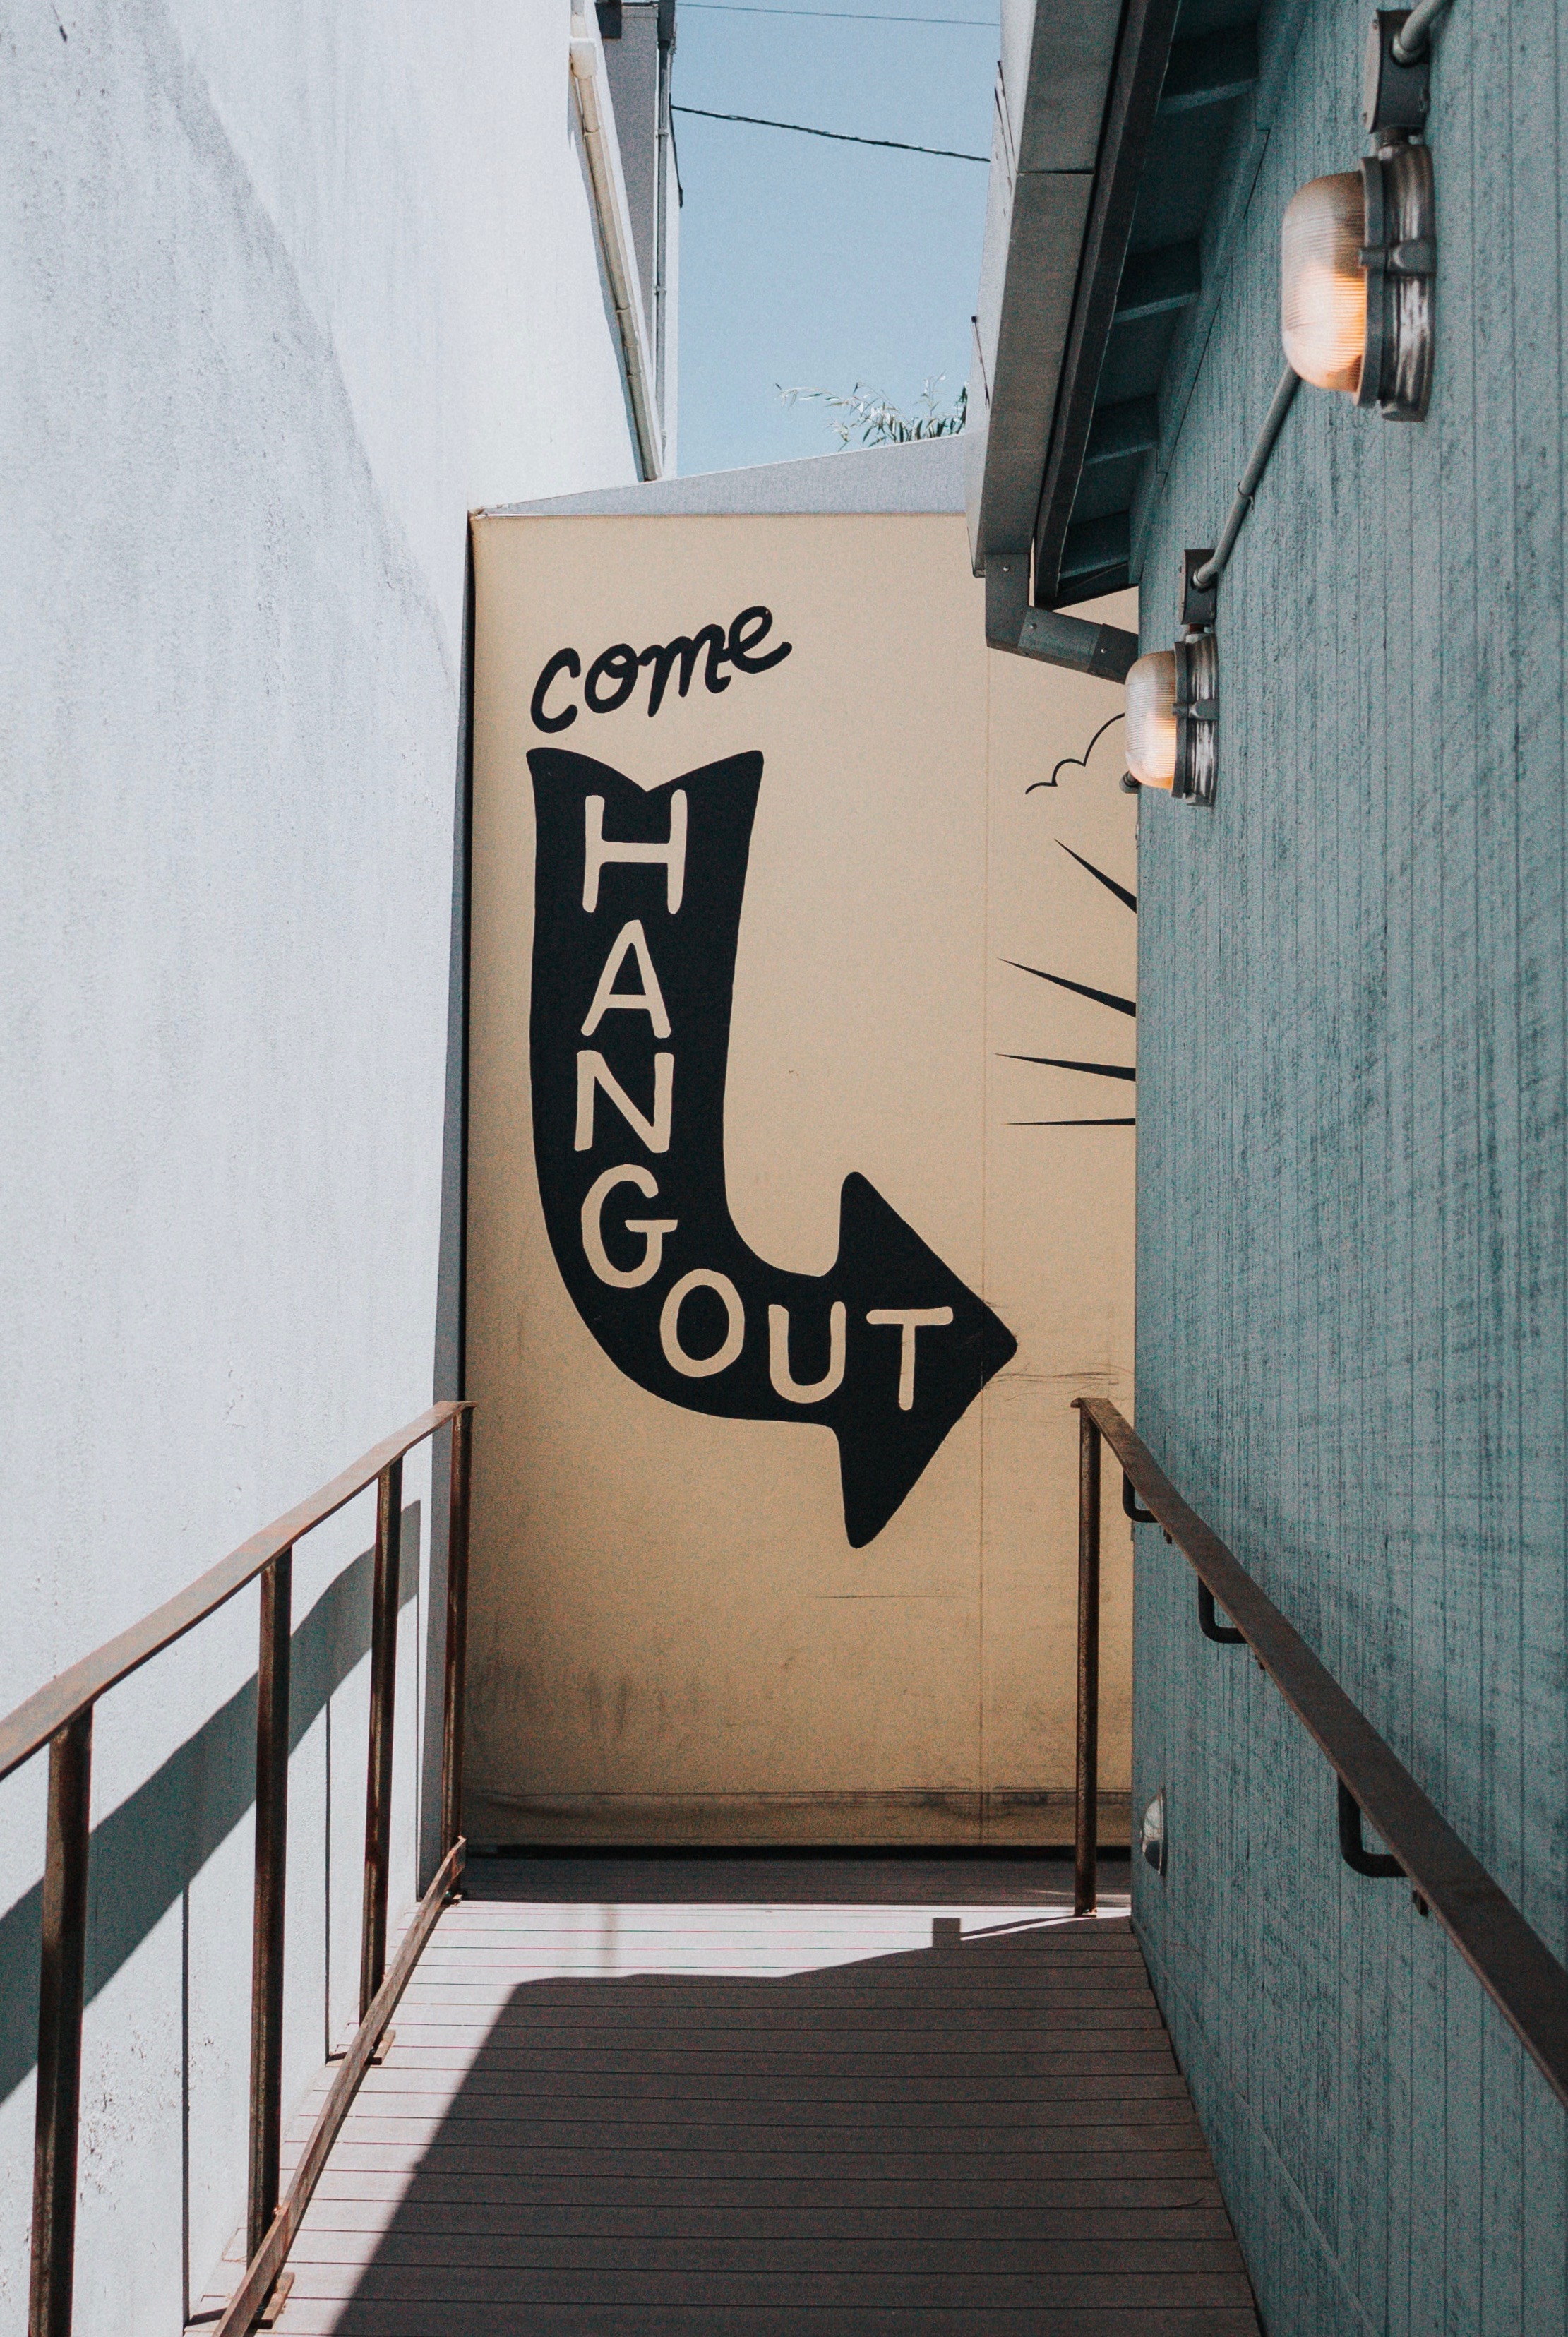 come
HANGOUT